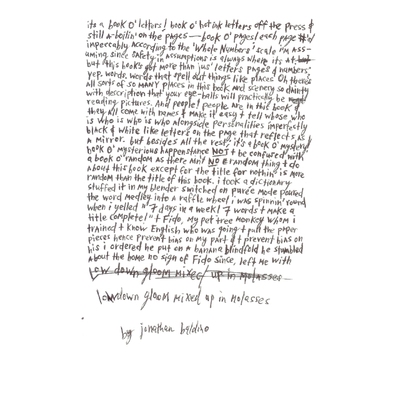 its a book o' letters! book o' hot ink letters off the press &
still a-boilin' on the pages — book o' pages! each page #'d
impeccably according to the 'Whole Numbers' scale i'm ass-
uming since safety in assumptions is always where its at
but this book's got more than jus' letters pages & numbers!
yep. words. words that spell out things like places. Oh, theres
all sorts of so many places in this book and scenery so dainty
with description that your eye-balls will practically be
reading pictures. And people! people are in this book &
they all come with names t make it easy t tell whose who
is who is who is who alongside personalities imperfectly
black & white like letters on the page that reflects as
a mirror. but besides all the rest, it's a book o' mystery
book o' mysterious happenstance NOT t be confused with
a book o' random as there ain't NO random thing t do
about this book except for the title for nothin' is more
random than the title of this book. i took a dictionary
stuffed it in my blender switched on puree mode poured
the word medley into a raffle wheel i was spinnin' round
when i yelled "7 days in a week! 7 words t make a
title complete!" t Fido, my pet tree monkey whom i
trained t know English who was going t pull the paper
pieces hence prevent bias on my part & t prevent bias on
his i ordered he put on a banana blindfold he stumbled
about the home no sign of Fido since, left me with
Low down gloom mixed up in molasses
lowdown gloom mixed up in molasses
by jonathan baldino